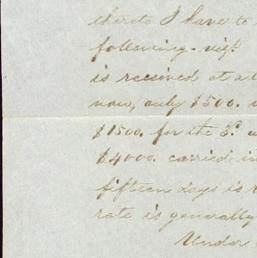 thereto I have to
following - viz:
is received at a
now, only $500.
$1500. for the 3.d
$4000. carried in
fifteen days is
rate is generally
Under